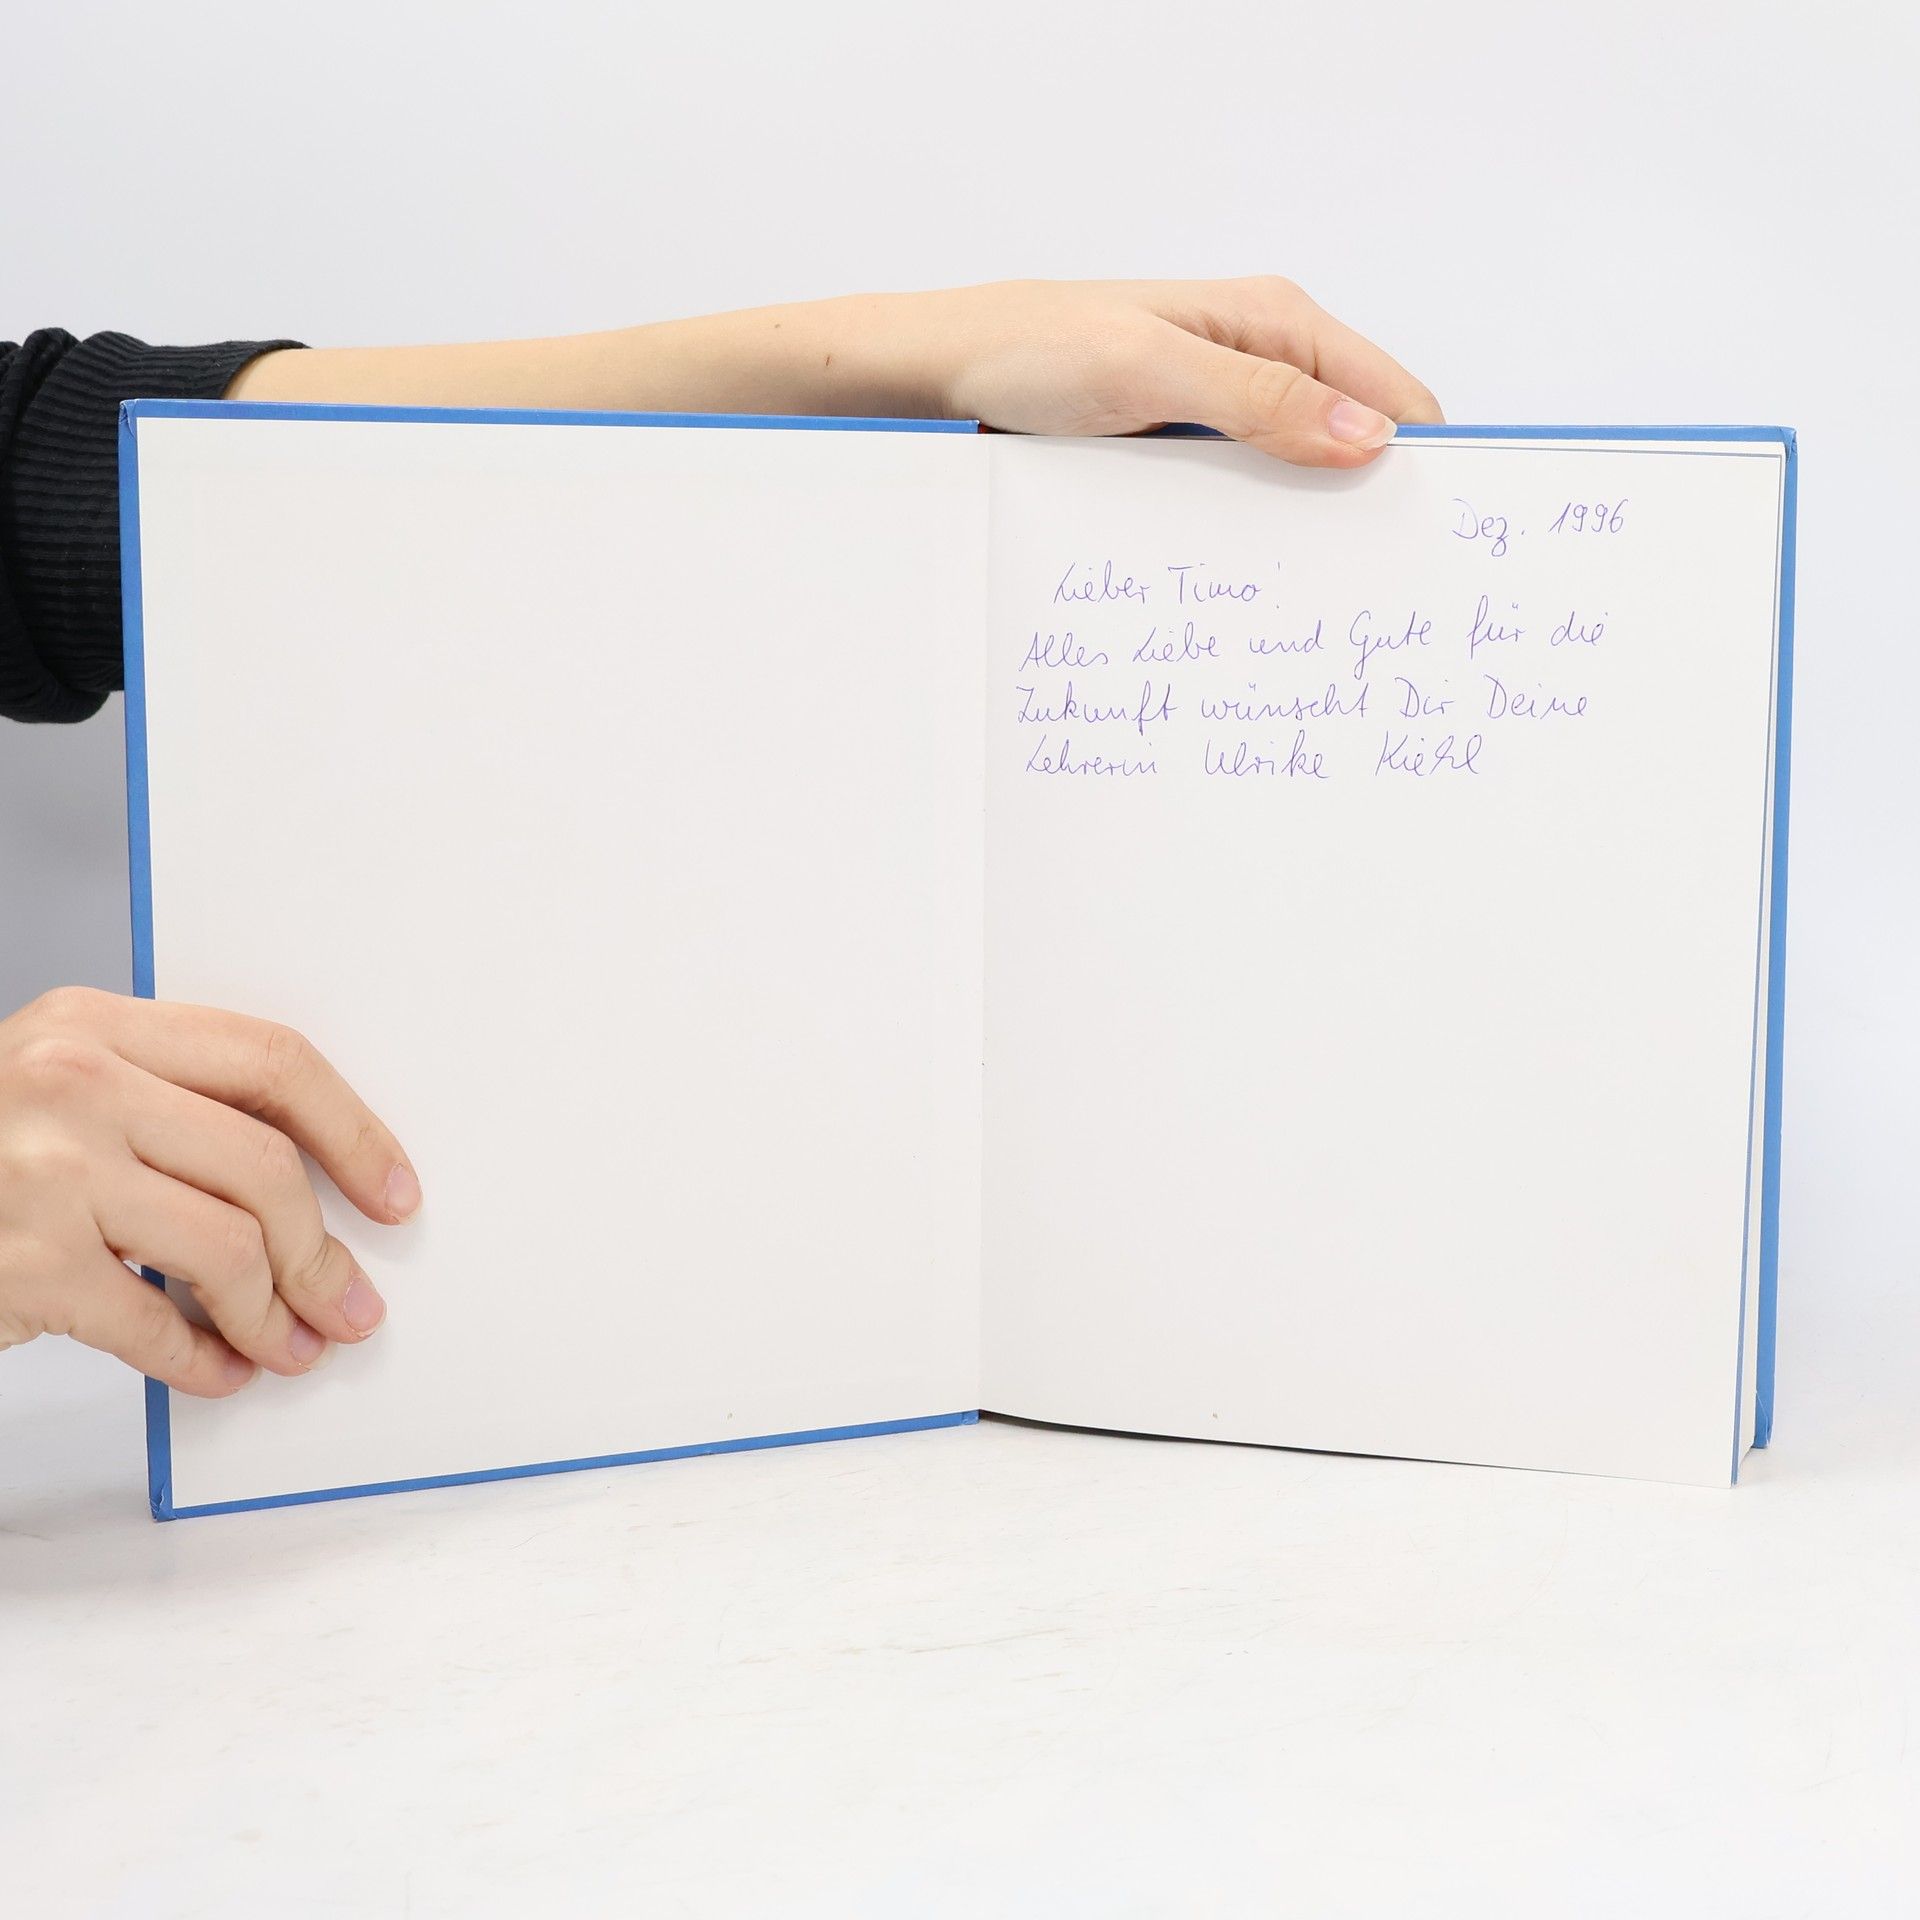 Dez. 1996
Lieber Timo!
Alles Liebe und Gute für die
Zukunft wünscht Dir Deine
Lehrerin Ulrike Kiehl